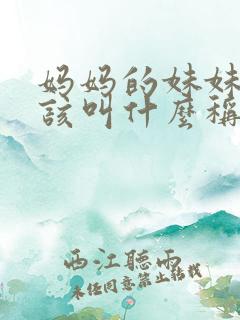 妈妈的妹妹
该叫什麼稱
西江聽雨
未经同意禁止转载